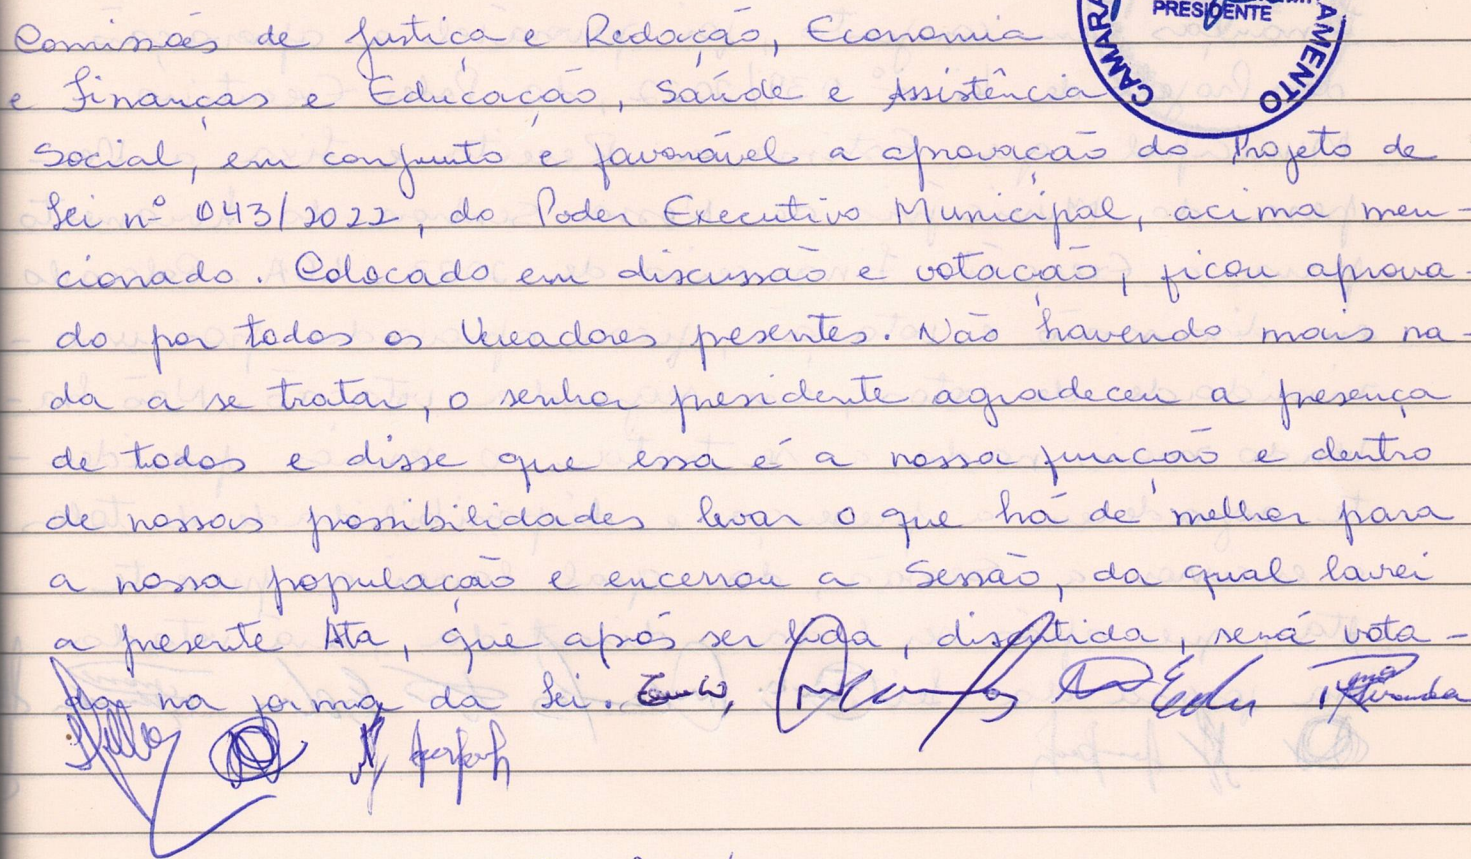 PRESIDENTE
CAMARA
AMENTO
Comissões de Justiça e Redação, Economia
e Finanças e Educação, Saúde e Assistência
Social, em conjunto e favorável a aprovação do Projeto de
Lei nº 043/2022, do Poder Executivo Municipal, acima men-
cionado. Colocado em discussão e votação, ficou aprova-
do por todos os Vereadores presentes. Não havendo mais na-
da a se tratar, o senhor presidente agradeceu a presença
de todos e disse que essa é a nossa função e dentro
de nossas possibilidades levar o que há de melhor para
a nossa população e encerrou a Sessão, da qual lavrei
a presente Ata, que após ser lida, discutida, será vota-
da na forma da Lei.